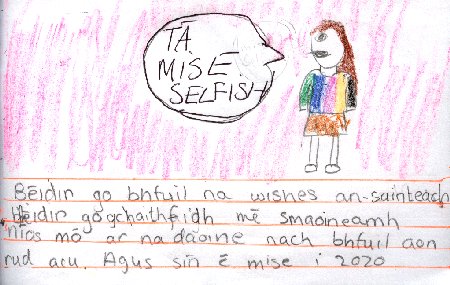 TÁ
MISE
SELFISH
Bēidir go bhfuil na wishes an-sainteach
Bēidir go gchaithfidh mē smaoineamh
níos mó ar na dāoine nach bhfuil aon
rud acu. Agus sin ē mise i 2020